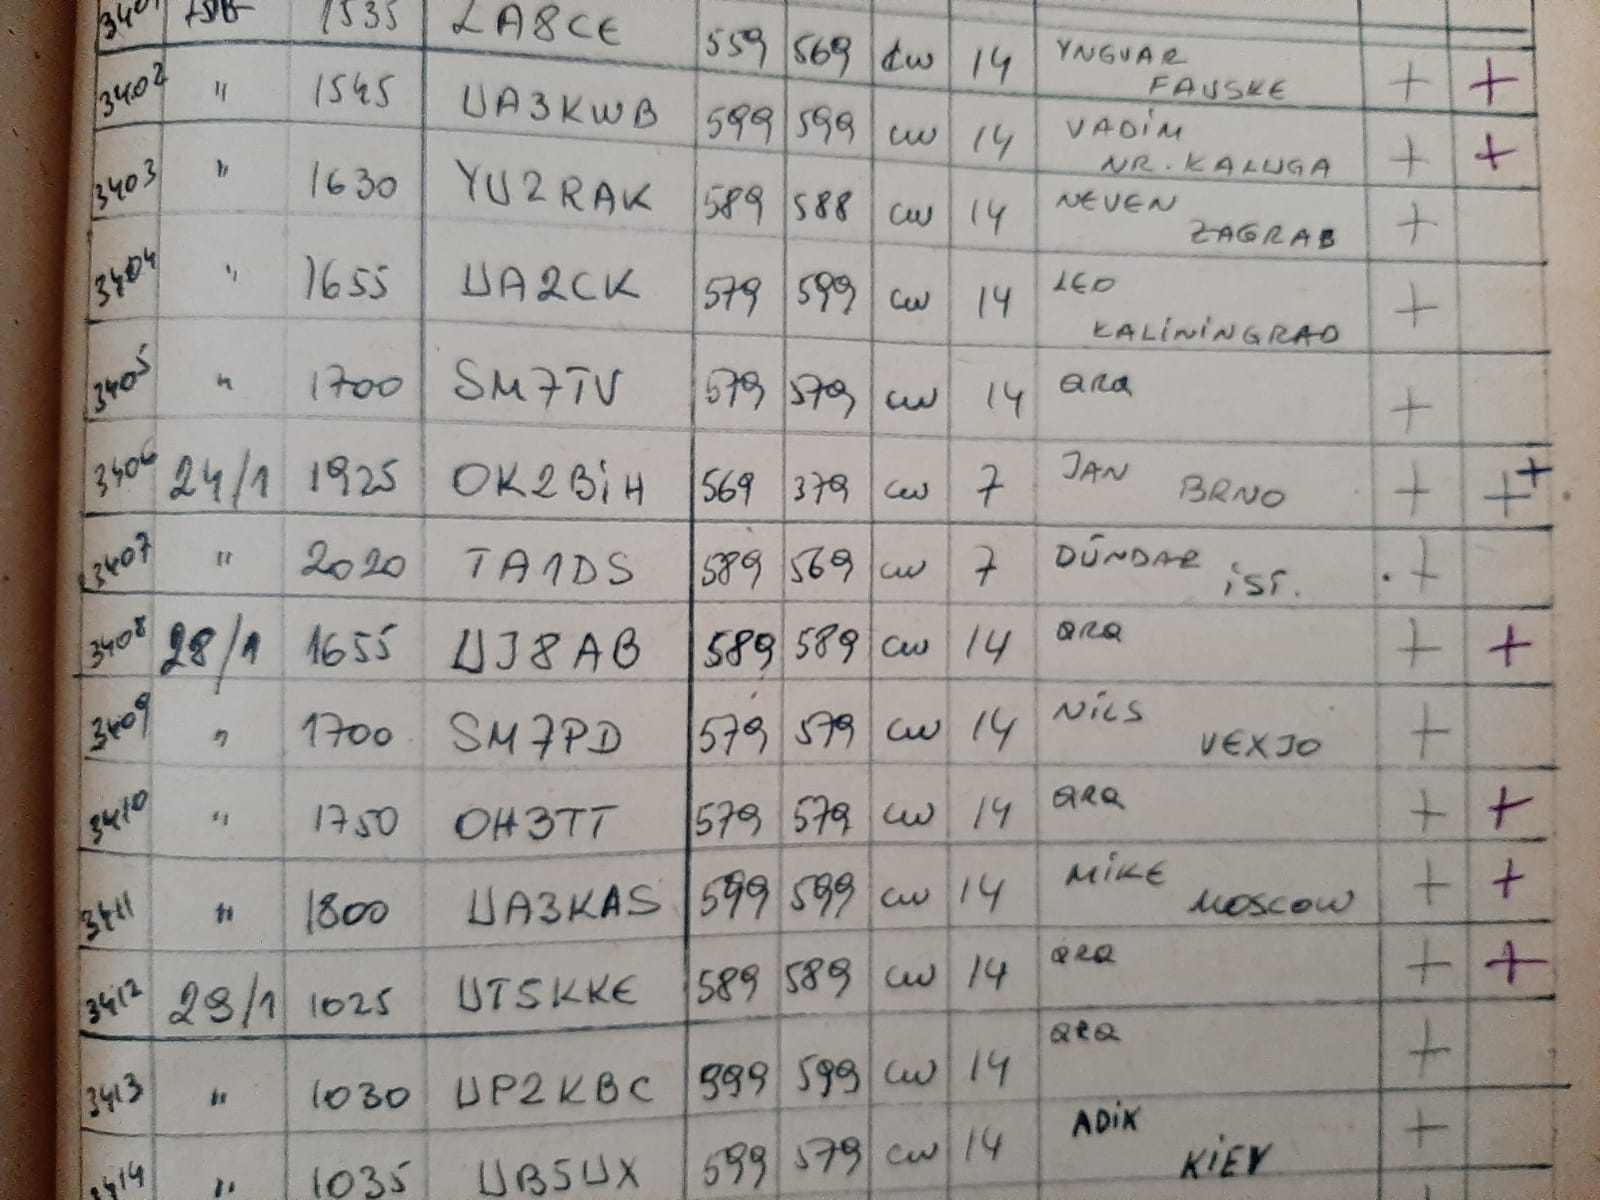 3401 1535 LA8CE 559 569 cw 14 YNGVAR FAUSKE + +
3402 " 1545 UA3KWB 599 599 cw 14 VADiM NR. KALUGA + +
3403 " 1630 YU2RAK 589 588 cw 14 NEVEN ZAGRAB +
3404 " 1655 UA2CK 579 599 cw 14 LEO KALiNiNGRAD +
3405 " 1700 SM7TV 579 579 cw 14 QRQ +
3406 24/1 1925 OK2BiH 569 379 cw 7 JAN BRNO + + +
3407 " 2020 TA1DS 589 569 cw 7 DÜNDAR iST. . +
3408 28/1 1655 UJ8AB 589 589 cw 14 QRQ + +
3409 " 1700 SM7PD 579 579 cw 14 NiLS VEXJO +
3410 " 1750 OH3TT 579 579 cw 14 QRQ + +
3411 " 1800 UA3KAS 599 599 cw 14 MiKE MOSCOW + +
3412 29/1 1025 UT5KKE 589 589 cw 14 QRQ + +
3413 " 1030 UP2KBC 599 599 cw 14 QRQ +
3414 " 1035 UB5UX 599 579 cw 14 ADiK KiEV +